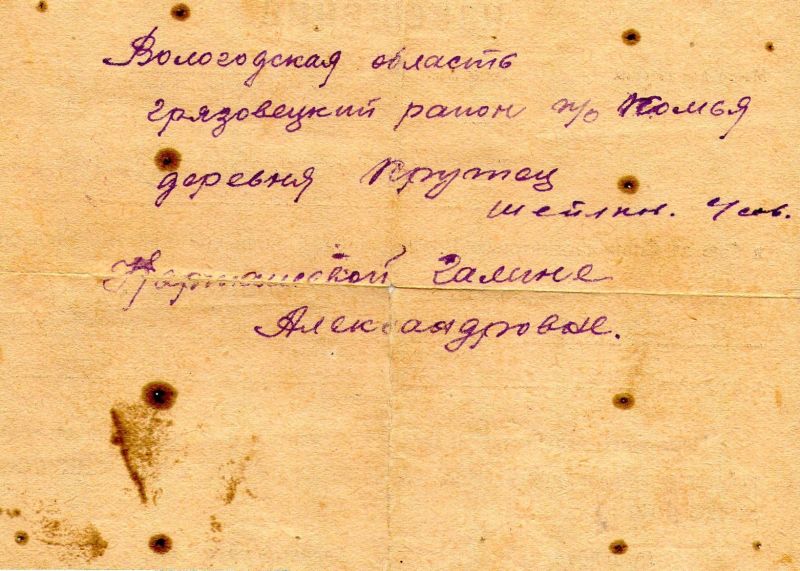 Вологодская область
грязовецкий район п/о Комья
деревня Кружец
Шейлкн. Чсов.
Галине
Александровне.